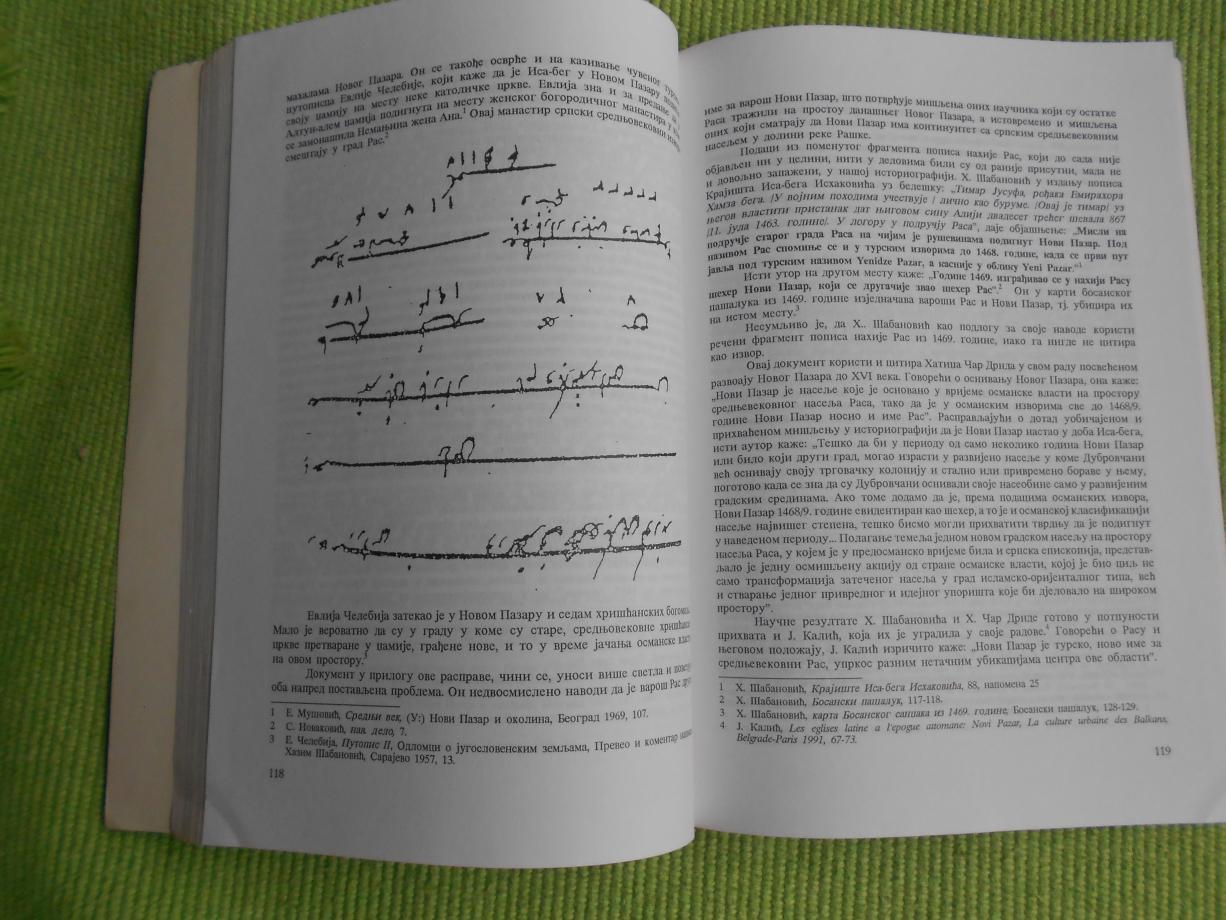 махалама Новог Пазара. Он се такође осврће и на казивање чувеног
путописца Евлије Челебије, који каже да је Иса-бег у Новом Пазару
своју џамију на месту неке католичке цркве. Евлија зна и за предање
Алтун-алем џамија подигнута на месту женског богородичног манастира у
се замонашила Немањина жена Ана.1 Овај манастир српски средњовековни
смештају у град Рас.2
Евлија Челебија затекао је у Новом Пазару и седам хришћанских
Мало је вероватно да су у граду у коме су старе, средњовековне
цркве претваране у џамије, грађене нове, и то у време јачања османске
на овом простору.3
Документ у прилогу ове расправе, чини се, уноси више светла и
оба напред постављена проблема. Он недвосмислено наводи да је варош Рас
1 Е. Мушовић, Средњи век, (У:) Нови Пазар и околина, Београд 1969, 107.
2 С. Новаковић, нав. дело, 7.
3 Е. Челебија, Путопис II, Одломци о југословенским земљама, Превео и коментар
Хазим Шабановић, Сарајево 1957, 13.
118
име за варош Нови Пазар, што потврђује мишљења оних научника који су остатке
Раса тражили на простоу данашњег Новог Пазара, а истовремено и мишљења
оних који сматрају да Нови Пазар има континуитет са српским средњевековним
насељем у долини реке Рашке.
Подаци из поменутог фрагмента пописа нахије Рас, који до сада није
објављен ни у целини, нити у деловима били су од раније присутни, мада не
и довољно запажени, у нашој историографији. Х. Шабановић у издању пописа
Крајишта Иса-бега Исхаковића уз белешку: „Тимар Јусуфа, рођака Емирахора
Хамза бега. /У војним походима учествује / лично као буруме. /Овај је тимар/ уз
његов властити пристанак дат његовом сину Алији двадесет трећег шевала 867
/11. јула 1463. године/. У логору у подручју Раса", даје објашњење: „Мисли на
подручје старог града Раса на чијим је рушевинама подигнут Нови Пазар. Под
називом Рас спомиње се и у турским изворима до 1468. године, када се први пут
јавља под турским називом Yenidze Pazar, а касније у облику Yeni Pazar."1
Исти утор на другом месту каже: „Године 1469. изграђивао се у нахији Расу
шехер Нови Пазар, који се другачије звао шехер Рас".2 Он у карти босанског
пашалука из 1469. године изједначава вароши Рас и Нови Пазар, тј. убицира их
на истом месту.3
Несумљиво је, да Х.. Шабановић као подлогу за своје наводе користи
речени фрагмент пописа нахије Рас из 1469. године, иако га нигде не цитира
као извор.
Овај документ користи и цитира Хатиџа Чар Дрнда у свом раду посвећеном
развоају Новог Пазара до XVI века. Говорећи о оснивању Новог Пазара, она каже:
„Нови Пазар је насеље које је основано у вријеме османске власти на простору
средњевековног насеља Раса, тако да је у османским изворима све до 1468/9.
године Нови Пазар носио и име Рас". Расправљајући о дотад уобичајеном и
прихваћеном мишљењу у историографији да је Нови Пазар настао у доба Иса-бега,
исти аутор каже: „Тешко да би у периоду од само неколико година Нови Пазар
или било који други град, могао израсти у развијено насеље у коме Дубровчани
већ оснивају своју трговачку колонију и стално или привремено бораве у њему,
поготово када се зна да су Дубровчани оснивали своје насеобине само у развијеним
градским срединама. Ако томе додамо да је, према подацима османских извора,
Нови Пазар 1468/9. године евидентиран као шехер, а то је и османској класификацији
насеље највишег степена, тешко бисмо могли прихватити тврдњу да је подигнут
у наведеном периоду... Полагање темеља једном новом градском насељу на простору
насеља Раса, у којем је у предосманско вријеме била и српска епископија, представ-
љало је једну осмишљену акцију од стране османске власти, којој је био циљ не
само трансформација затеченог насеља у град исламско-оријенталног типа, већ
и стварање једног привредног и идејног упоришта које би дјеловало на широком
простору".
Научне резултате Х. Шабановића и Х. Чар Дрнде готово у потпуности
прихвата и Ј. Калић, која их је уградила у своје радове.4 Говорећи о Расу и
његовом положају, Ј. Калић изричито каже: „Нови Пазар је турско, ново име за
средњевековни Рас, упркос разним нетачним убикацијама центра ове области".
1 Х. Шабановић, Крајиште Иса-бега Исхаковића, 88, напомена 25
2 Х. Шабановић, Босански пашалук, 117-118.
3 Х. Шабановић, карта Босанског санџака из 1469. године, Босански пашалук, 128-129.
4 Ј. Калић, Les eglises latine a l'epogue attomane: Novi Pazar, La culture urbaine des Balkans,
Belgrade-Paris 1991, 67-73.
119